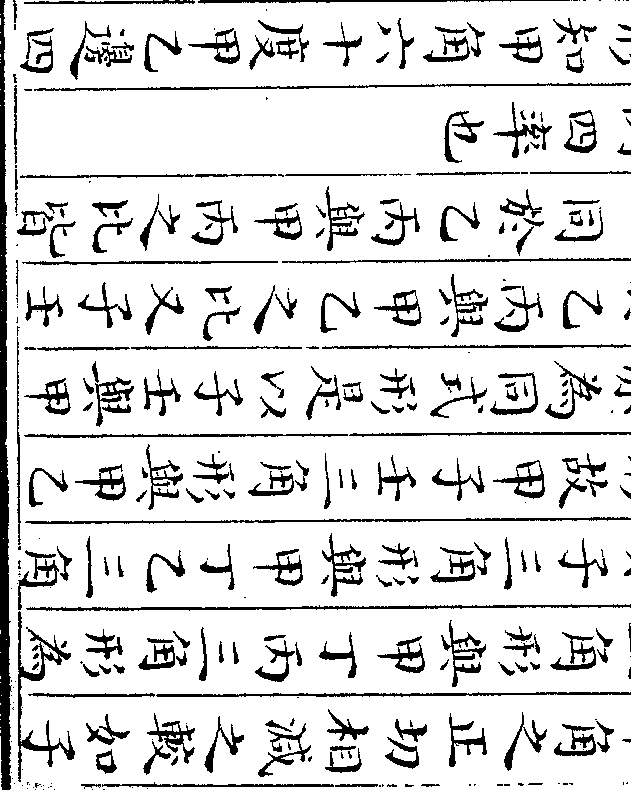 角之正切相減之較如子
角形與甲丁丙三角形為
子三角形與甲丁乙三角
故甲子壬三角形與甲乙
為同式形是以子壬與甲
乙丙與甲乙之比又子壬
同於乙丙與甲丙之比皆
四率也
知甲角六十度甲乙邊四